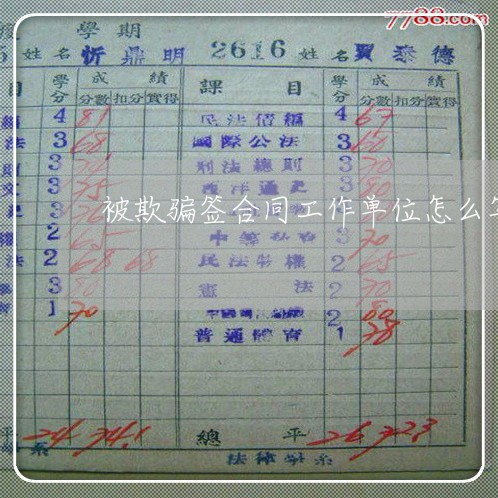 7788.com
學期
姓名 忻鼎明 2616 姓名 賈泰德
目 學分 成績 課目 學分 成績
分數 扣分 實得 分數 扣分 實得
4 81 民法債編 4 67
法 3 68 國際公法 3 60
3 刑法總則 3 70
3 75 西洋通史 3 80
被欺骗签合同工作单位怎么
2 65 3 70
2 68 68 民法物權 2 65
3 80 憲法 2 70
1 70 2 80
普通體育 1 78
平 24 74.1 總平 26 72.3
系 法律學系